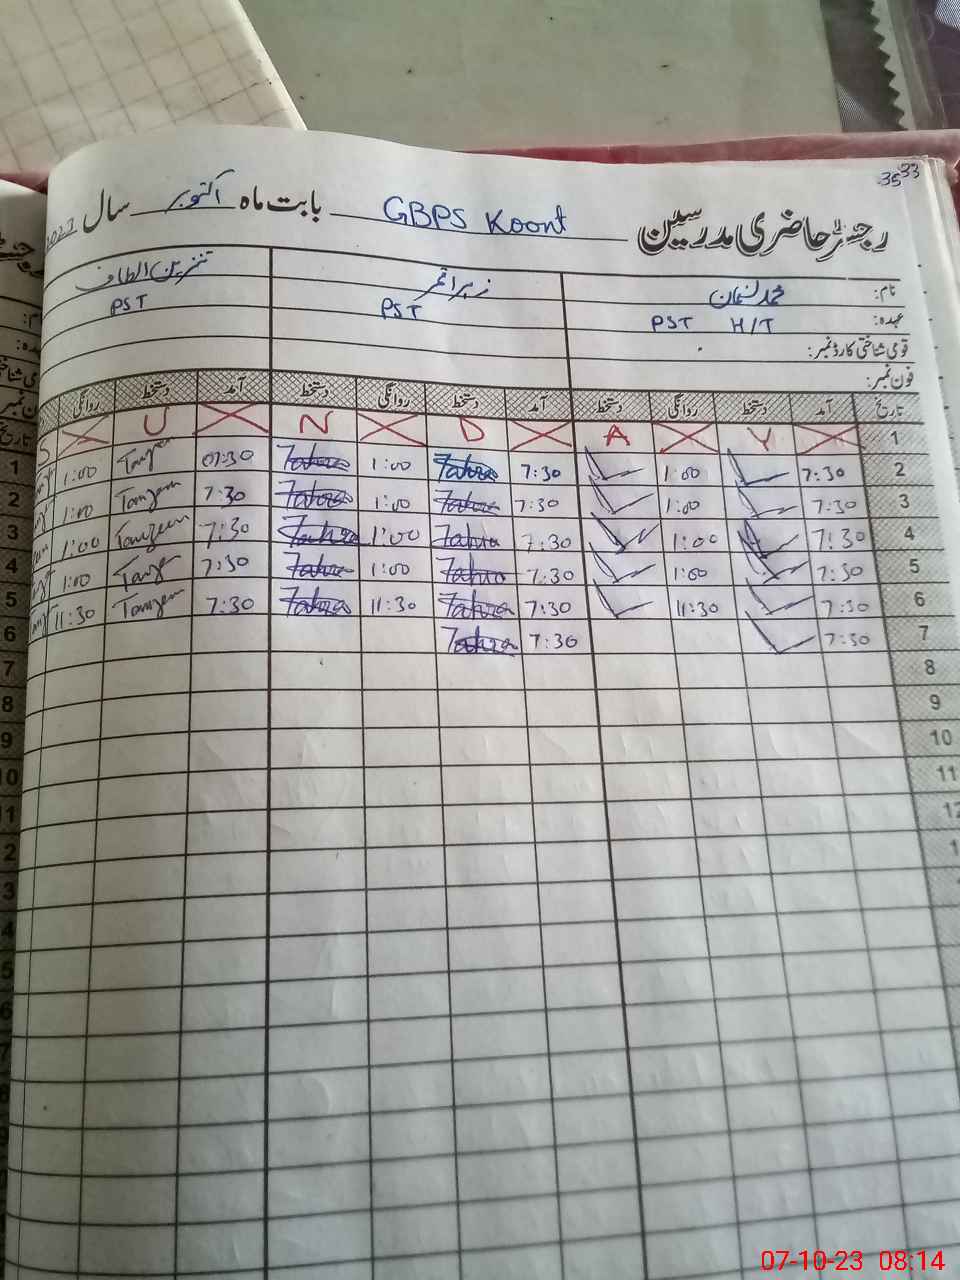 35 33
رجسٹر حاضری مدرسین GBPS Koont بابت ماہ اکتوبر سال 2023
نام: محمد نعمان زہرا قمر تنزین الطاف
عہدہ: PST H/T PST PST
قومی شناختی کارڈ نمبر:
فون نمبر:
تاریخ آمد دستخط روانگی دستخط آمد دستخط روانگی دستخط آمد دستخط روانگی
1 Y A D N U S
2 7:30 1:00 7:30 Zahra 1:00 Zahra 07:30 1:00 1
3 7:30 1:00 7:30 Zahra 1:00 Zahra 7:30 Tanzeem 1:00 2
4 7:30 1:00 7:30 Zahra 1:00 Zahra 7:30 Tanzeem 1:00 3
5 7:30 1:00 7:30 Zahra 1:00 Zahra 7:30 1:00 4
6 7:30 11:30 7:30 Zahra 11:30 Zahra 7:30 Tanzeem 11:30 5
7 7:30 7:30 Zahra 6
8 7
9 8
10 9
11 10
12 11
07-10-23 08:14